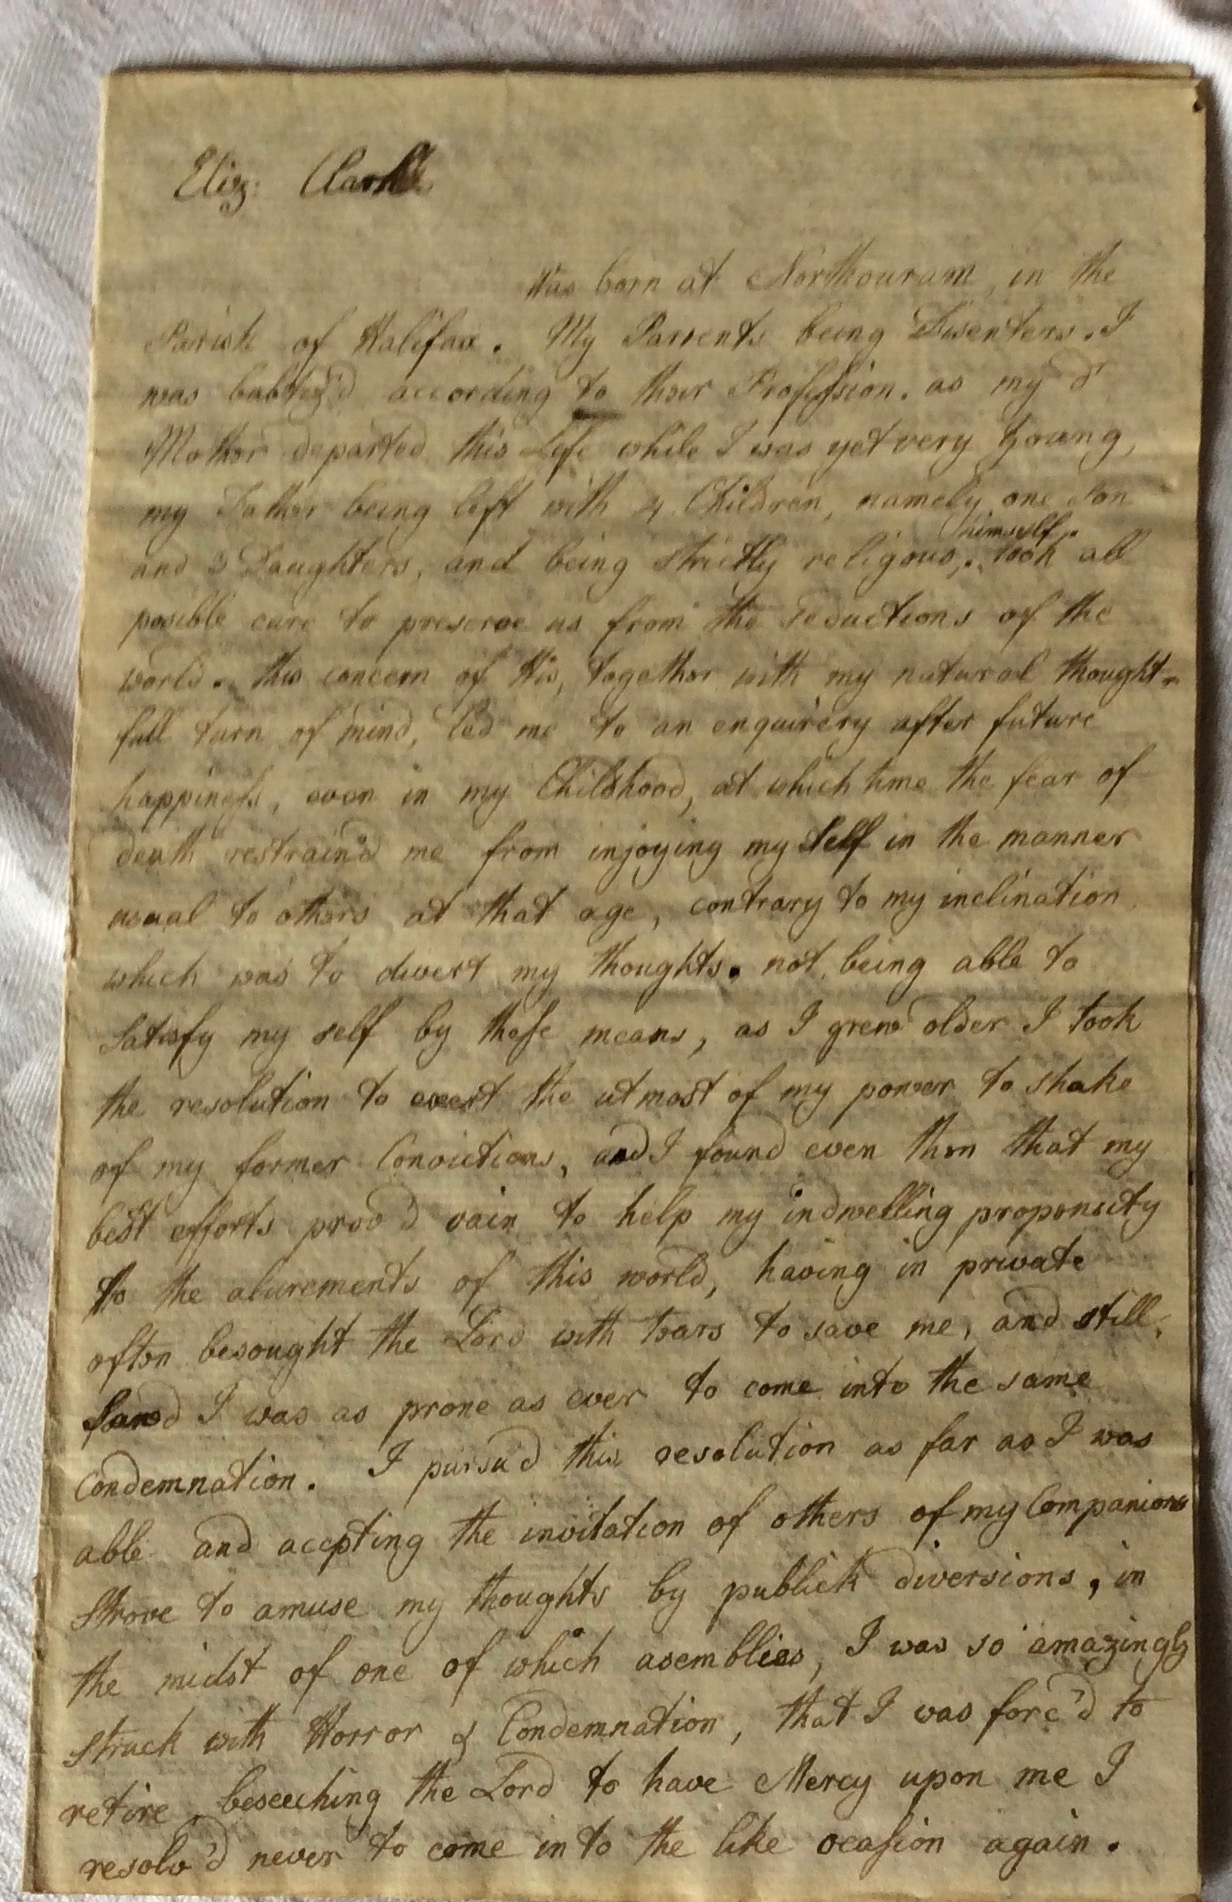 Eliz: Clark
Was born at Northouram, in the
Parish of Halifax. My Parrents being Disenters. I
was babtiz'd according to their Profession. as my dr
Mother departed this Life while I was yet very Young,
my Father being left with 4 Children, namely one Son
himself
and 3 Daughters, and being strictly religous, took all
posible care to preserve us from the seductions of the
world. this concern of His, together with my natural thought-
full turn of mind, led me to an enquirery after future
happiness, even in my Childhood, at which time the fear of
death restrain'd me from injoying my Self in the manner
usual to others at that age, contrary to my inclination,
which was to divert my thoughts. not being able to
satisfy my self by these means, as I grew older I took
the resolution to exert the utmost of my power to shake
of my former Convictions, and I found even then that my
best efforts prov'd vain to help my indwelling propensity
to the alurements of this world, having in private
often besought the Lord with tears to save me, and still,
found I was as prone as ever to come into the same
Condemnation. I pursu'd this resolution as far as I was
able and accpting the invitation of others of my Companions
strove to amuse my thoughts by publick diversions, in
the midst of one of which asemblies, I was so amazingly
struck with Horror & Condemnation, that I was forc'd to
retire, beseeching the Lord to have Mercy upon me I
resolv'd never to come into the like ocasion again.